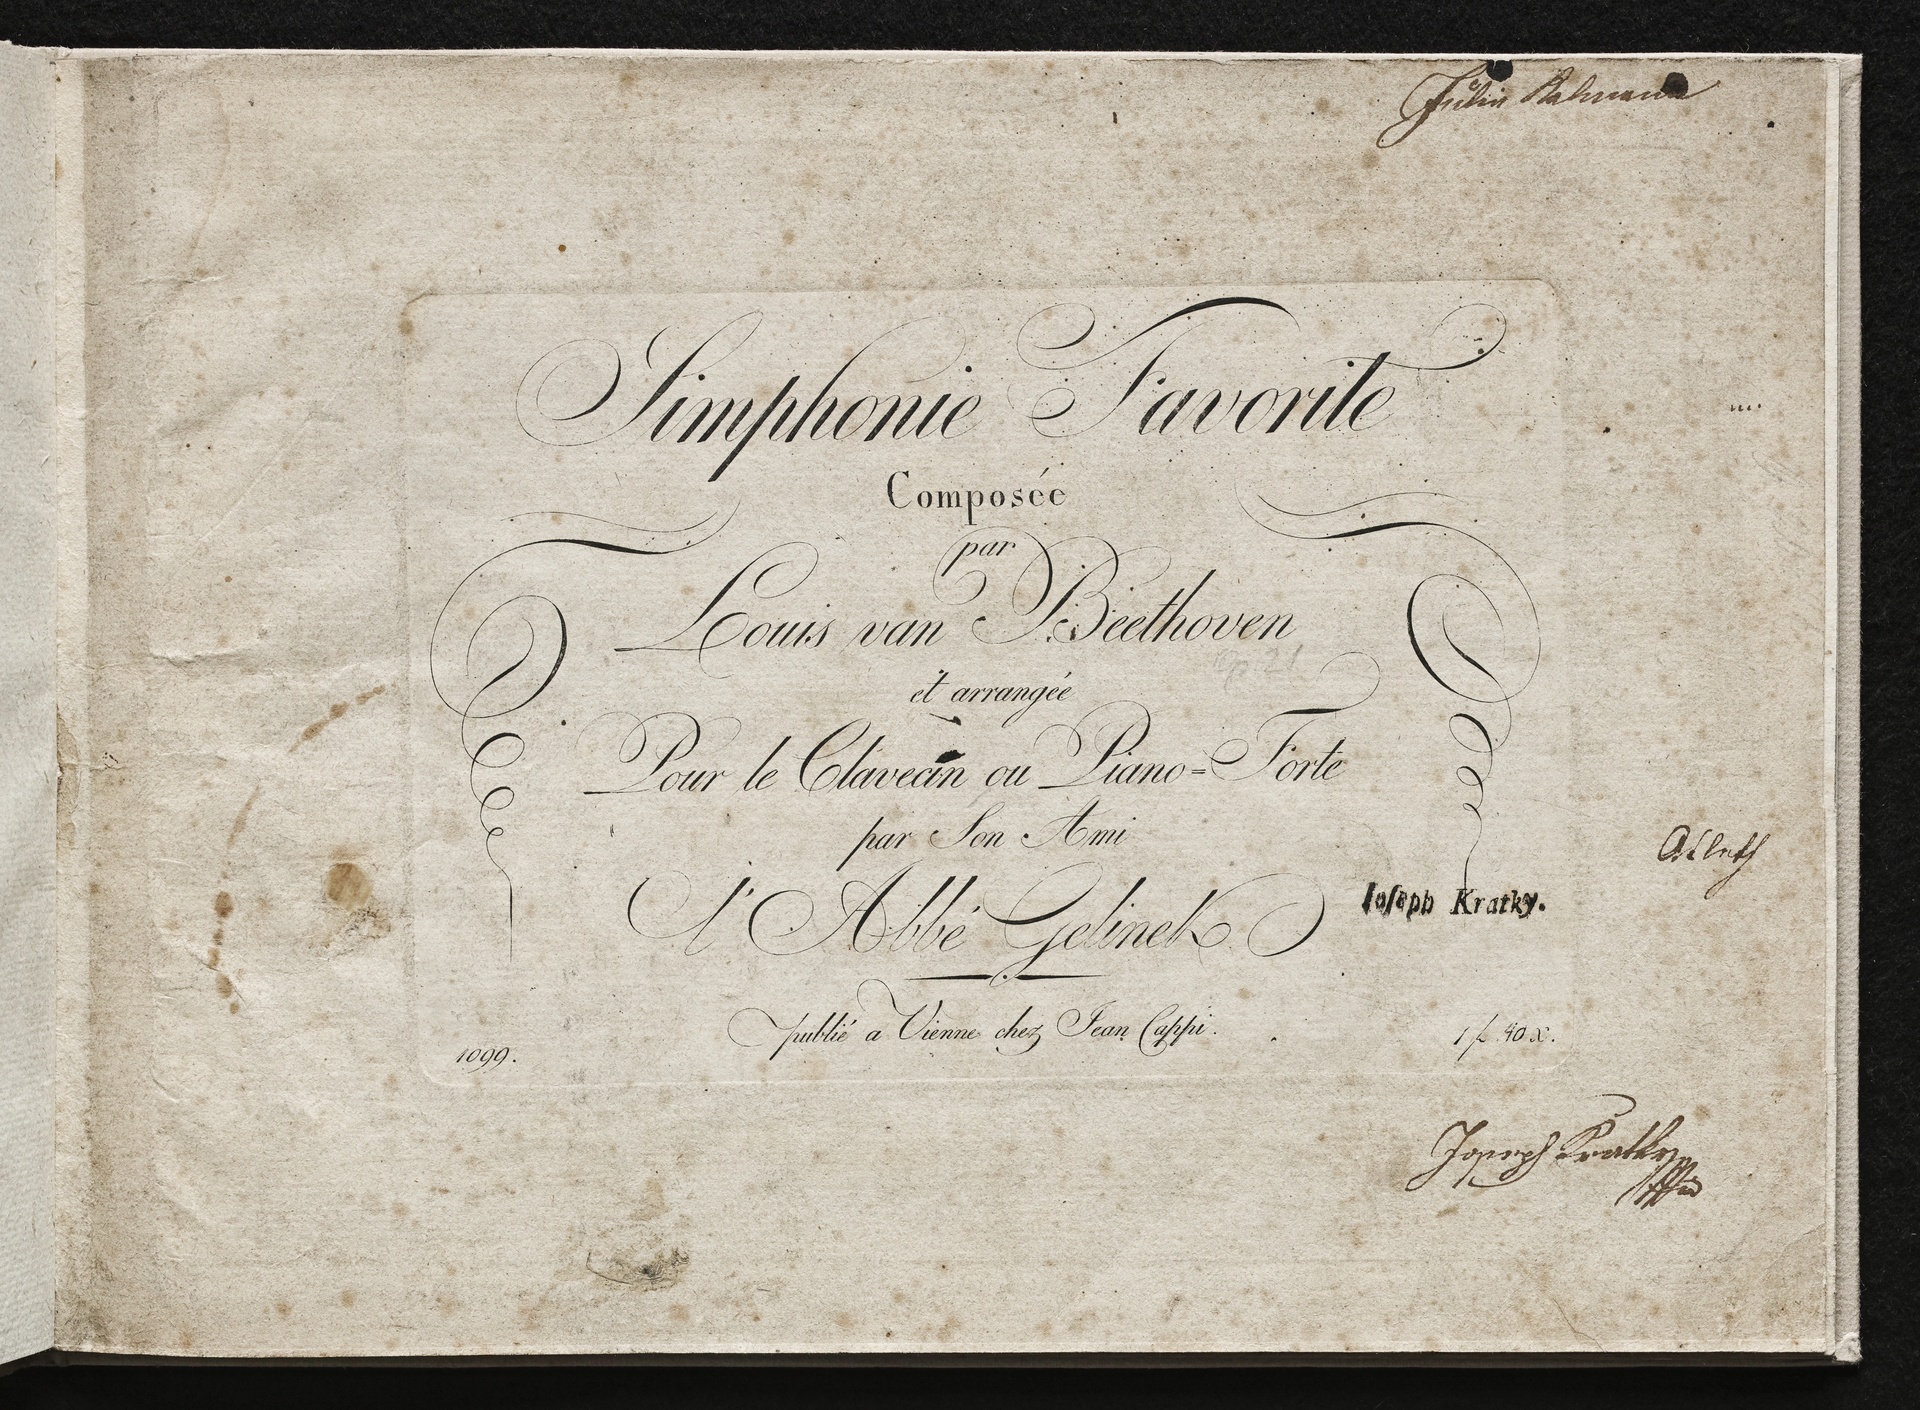 Simphonie Favorite
Composée
par
Louis van Beethoven
op. 21
et arrangée
Pour le Clavecin ou Piano=Forte
par Son Ami
l'Abbé Gelinek
Ioseph Kratky.
publié a Vienne chez Jean Cappi.
1099.
1 f. 40 x.
Joseph Kratky